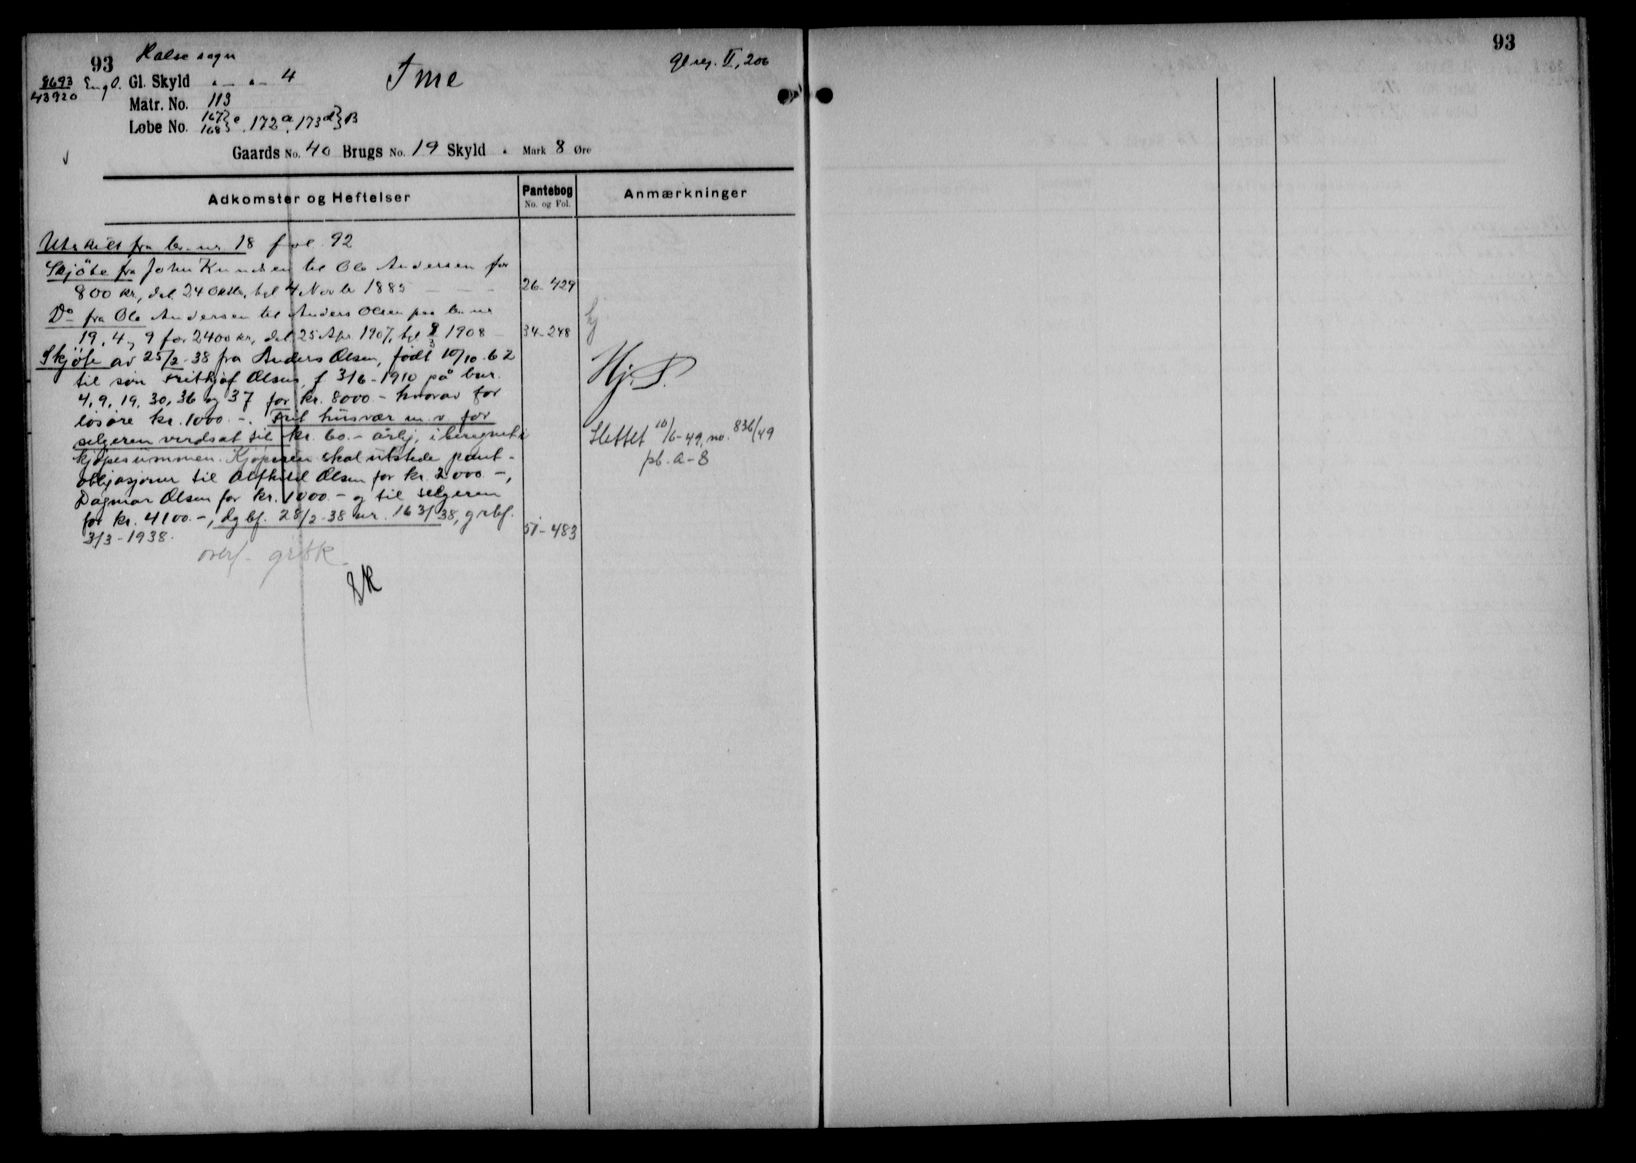 93
93
Halse sogn
Gl. reg. II, 206
8693
43920
Eng O. Gl. Skyld " — " — 4
Ime
Matr. No. 113
Løbe No. 167 168 e, 172 a, 173 d } B
Gaards No. 40 Brugs No. 19 Skyld " Mark 8 Øre
Adkomster og Heftelser
Pantebog
No. og Fol.
Anmærkninger
Utskilt fra br. nr 18 fol. 92
Skjöte fra John Knudsen til Ole Andersen for
800 kr., dat. 24 Oktbr, tgl 4 Novbr 1885 — — — 26-429
Do fra Ole Andersen til Anders Olsen paa br. nr
19, 4, 9 for 2400 kr, dat 25 Apr 1907, tgl 9/3 1908 — 34-248
Skjöte av 25/2-38 fra Anders Olsen, født 10/10-62
til søn Fritkjof Olsen, f 3/6-1910 på bnr.
4, 9, 19, 30, 36 og 37 for kr. 8000 - hvorav for
løsøre kr. 1000.-. Frit husvær m. v. for
selgeren verdsat til kr. 60.- årlig, iberegnet i
kjøpesummen. Kjøperen skal utstede pant-
obligasjoner til Alfhild Olsen for kr. 2000.-,
Dagmar Olsen for kr. 1000.- og til selgeren
for kr. 4100.-, dgbf. 28/2-38 nr. 163/38, grbf.
3/3-1938. 51-483
overf. grbk.
Hj. S.
Slettet 10/6-49, no. 836/49
pb. A-8